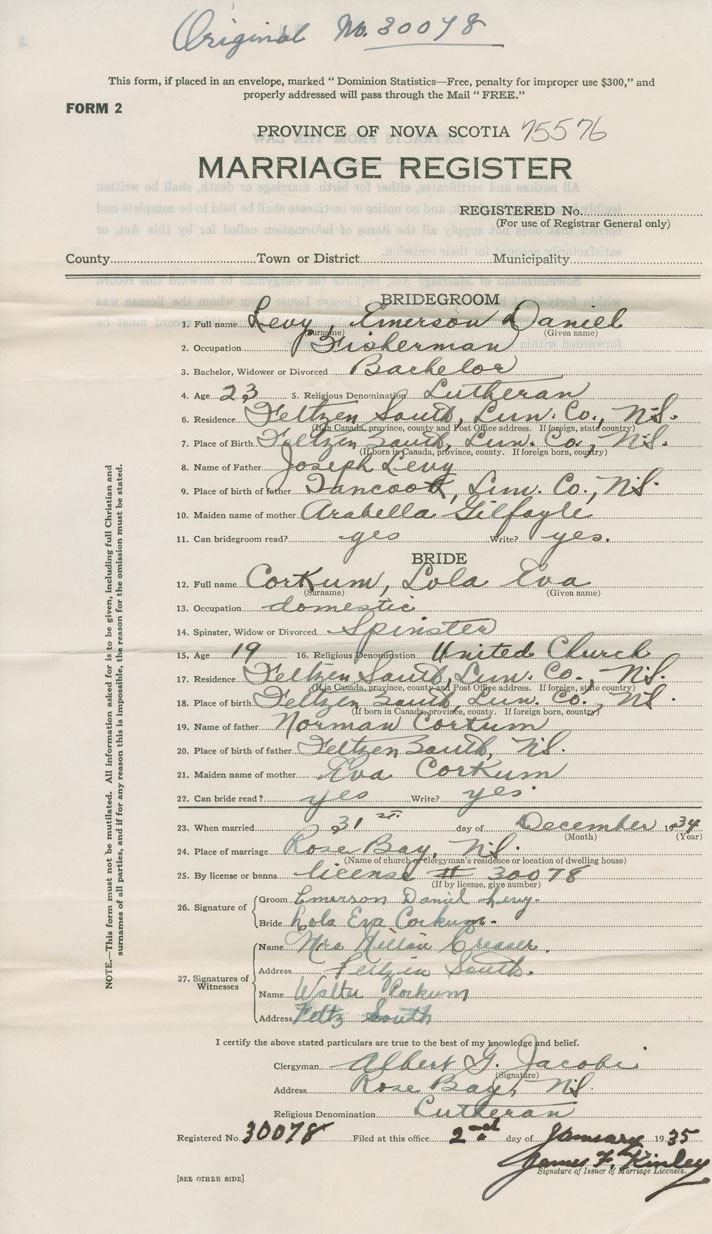 Original No. 30078
This form, if placed in an envelope, marked "Dominion Statistics—Free, penalty for improper use $300," and
properly addressed will pass through the Mail "FREE."
FORM 2
PROVINCE OF NOVA SCOTIA 75576
MARRIAGE REGISTER
REGISTERED No.
(For use of Registrar General only)
County Town or District Municipality
BRIDEGROOM
1. Full name Levy, Emerson Daniel
(Surname) (Given name)
2. Occupation Fisherman
3. Bachelor, Widower or Divorced Bachelor
4. Age 23 5. Religious Denomination Lutheran
6. Residence Feltzen South, Lun. Co., N.S.
(If in Canada, province, county and Post Office address. If foreign, state country)
7. Place of Birth Feltzen South, Lun. Co., N.S.
(If born in Canada, province, county. If foreign born, country)
8. Name of Father Joseph Levy
9. Place of birth of father Tancook, Lun. Co., N.S.
10. Maiden name of mother Arabella Gilfoyle
11. Can bridegroom read? yes Write? yes.
BRIDE
12. Full name Corkum, Lola Eva
(Surname) (Given name)
13. Occupation domestic
14. Spinster, Widow or Divorced Spinster
15. Age 19 16. Religious Denomination United Church
17. Residence Feltzen South, Lun. Co., N.S.
(If in Canada, province, county and Post Office address. If foreign, state country)
18. Place of birth Feltzen South, Lun. Co., N.S.
(If born in Canada, province, county. If foreign born, country)
19. Name of father Norman Corkum
20. Place of birth of father Feltzen South, N.S.
21. Maiden name of mother Eva Corkum
22. Can bride read? yes Write? yes.
23. When married 31st day of December 1934
(Month) (Year)
24. Place of marriage Rose Bay, N.S.
(Name of church or clergyman's residence or location of dwelling house)
25. By license or banns license # 30078
(If by license, give number)
26. Signature of Groom Emerson Daniel Levy.
Bride Lola Eva Corkum.
27. Signatures of Witnesses Name Mrs Creaser.
Address Feltzin South.
Name Walter Corkum
Address Feltz South
I certify the above stated particulars are true to the best of my knowledge and belief.
Clergyman Albert G. Jacobi
(Signature)
Address Rose Bay, N.S.
Religious Denomination Lutheran
Registered No. 30078 Filed at this office 2nd day of January 1935
James F. Kinley
Signature of Issuer of Marriage Licenses.
[SEE OTHER SIDE]
NOTE.—This form must not be mutilated. All information asked for is to be given, including full Christian and
surnames of all parties, and if for any reason this is impossible, the reason for the omission must be stated.